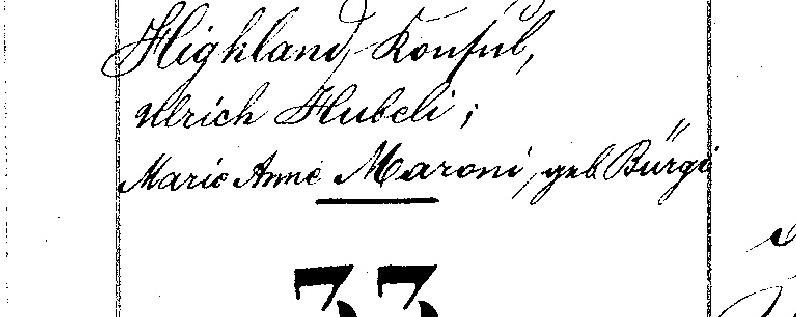 Highland, Konsul,
Ullrich Hubeli;
Marie Anne Maroni, geb. Bürgi
33